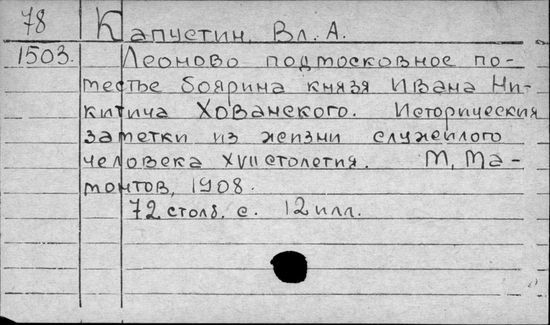 78 Капустин, Вл. А.
1503. Леоново подмосковное по-
местье боярина князя Ивана Ни-
китича Хованского. Исторические
заметки из жизни служилого
человека XVII столетия. М, Ма-
монтов, 1908.
72 столб. с. 12 илл.